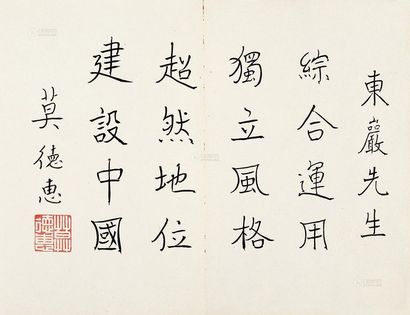 東巖先生
綜合運用
獨立風格
超然地位
建設中國
莫德惠
莫德惠